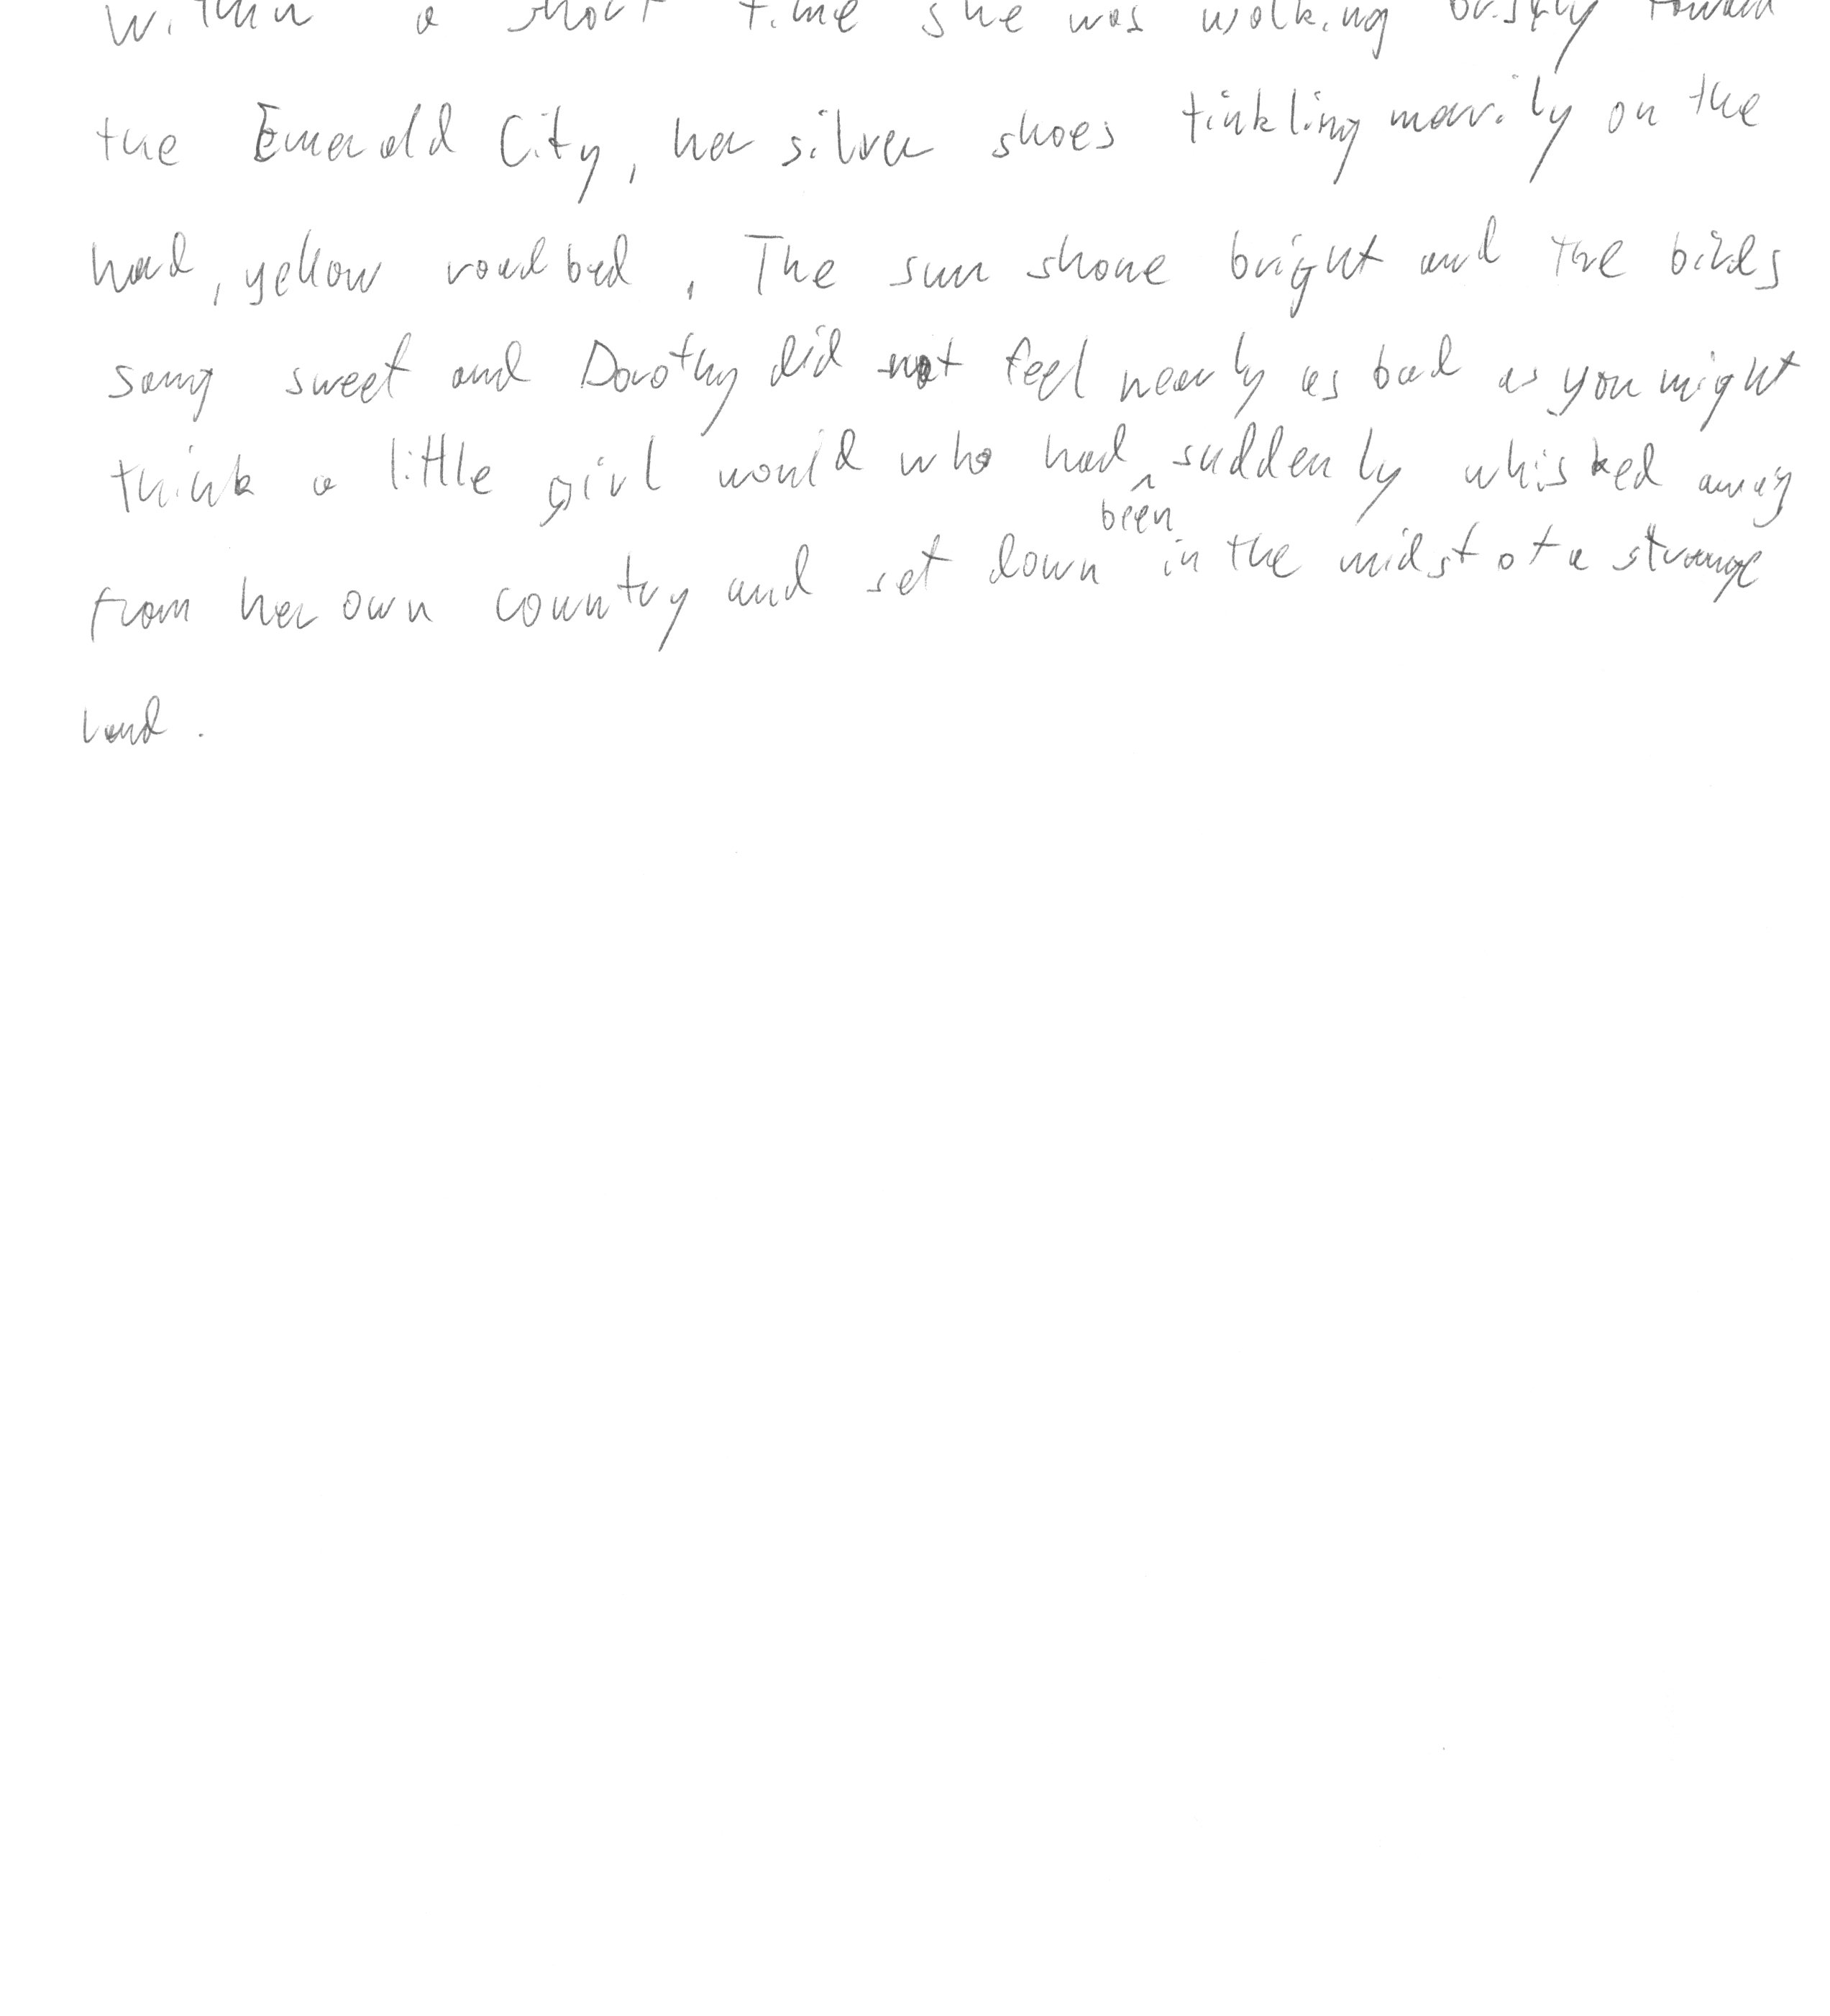 Within a short time she was walking briskly toward
the Emerald City, her silver shoes tinkling merrily on the
hard, yellow roadbed. The sun shone bright and the birds
sang sweet and Dorothy did not feel nearly as bad as you might
think a little girl would who had been suddenly whisked away
from her own country and set down in the midst of a strange
land.